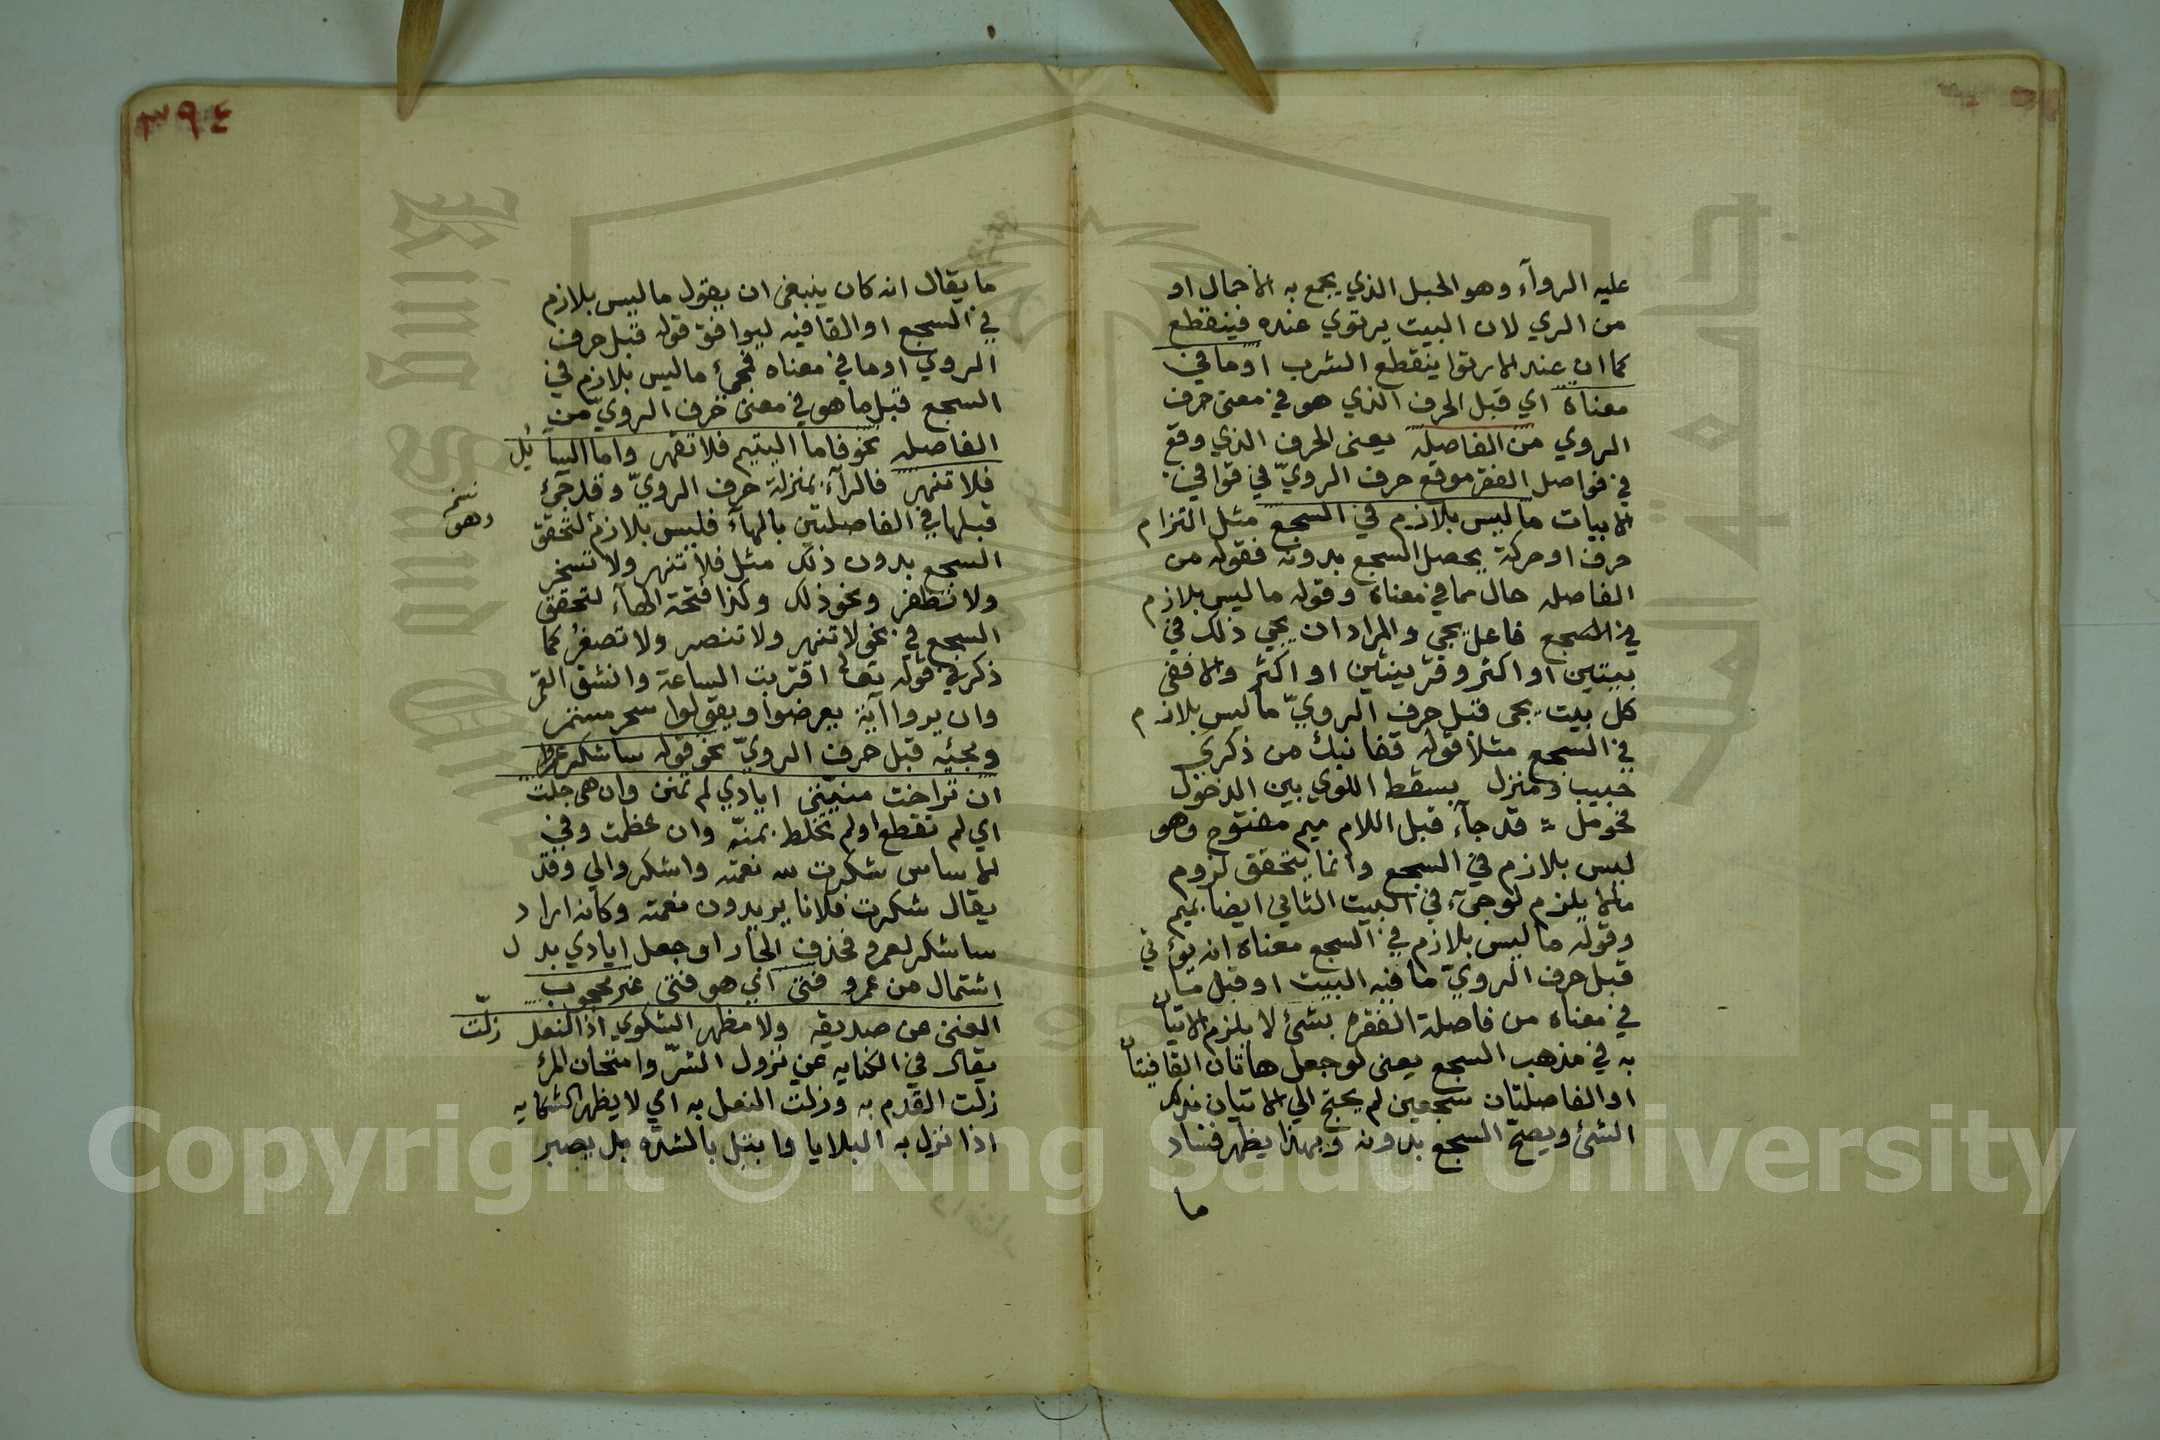 عليه الروآء وهو الحبل الذي يجمع به الاحمال او
من الري لان البيت يرتوي عنده فينقطع
كما ان عند الارتوا ينقطع الشرب اوما في
معناه اي قبل الحرف الذي هو في معنى حرف
الروي من الفاصله يعنى الحرف الذي وقع
في فواصل الفقر موقع حرف الرويّ في قوافي
الابيات ما ليس بلازم في السجع مثل التزام
حرف او حركة يحصل السجع بدونه فقوله من
الفاصله حال مما في معناه وقوله ما ليس بلازم
في السجع فاعل يجي والمراد ان يجي ذلك في
بيتين او اكثر وقرينتين او اكثر والا ففي
كل بيت يجى قبل حرف الرويّ ما ليس بلازم
في السجع مثلا قوله قفا نبك من ذكري
حبيب ومنزل بسقط اللوي بين الدخول
فحومل = قد جآء قبل اللام ميم مفتوح وهو
ليس بلازم في السجع وانما يتحقق لزوم
مالا يلزم لو جيء في البيت الثاني ايضا بميم
وقوله ما ليس بلازم في السجع معناه ان يؤتي
قبل حرف الرويّ ما فيه البيت او قبل ما
في معناه من فاصلة الفقره بشئ لا يلزم الاتيان
به في مذهب السجع يعنى لو جعل هاتان القافيتان
او الفاصلتان سجعين لم يحتج الي الاتيان بذلك
الشئ ويصحّ السجع بدونه وبهذا يظهر فساد
ما
٣٩٤
ما يقال انه كان ينبغى ان يقول ما ليس بلازم
في السجع او القافيه ليوافق قوله قبل حرف
الروي اوما في معناه فمجئ ما ليس بلازم في
السجع قبل ما هو في معنى حرف الرويّ من
الفاصله نحو فاما اليتيم فلا تقهر واما السايل
فلا تنهر فالرآء بمنزلة حرف الرويّ وقد جئ
قبلها في الفاصلتين بالهآء فليس بلازم لتحقق
نسخه وهو
السجع بدون ذلك مثل فلا تنهر ولا تسخر
ولا تظفر ونحو ذلك وكذا فتحة الهآء لتحقق
السجع في نحو لا تنهر ولا تنصر ولا تصغر كما
ذكر في قوله تعالى اقتربت الساعة وانشق القمر
وان يروا اية يعرضوا ويقولوا سحر مستمر
ومجئيه قبل حرف الرويّ نحو قوله ساشكر عمروا
ان تراخت منيتى ايادي لم تمنن وان هى جلت
اي لم تقطع او لم تخلط بمنّه وان عظمت وفي
الاساس شكرت لله نعمته واشكروالي وقد
يقال شكرت فلانا يريدون نعمته وكانه اراد
ساشكر لعمرو فحذف الجار او جعل ايادي بدل
اشتمال من عمرو فتى اي هو فتى غير محجوب
الغنى عن صديقه ولا مظهر الشكوي اذ النعل زلّت
يقال في الكنايه عن نزول الشرّ وامتحان المرئ
زلت القدم به وزلت النعل به اي لا يظهر الشكايه
اذا نزل به البلايا وابتلي بالشده بل يصبر
Copyright © King Saud University